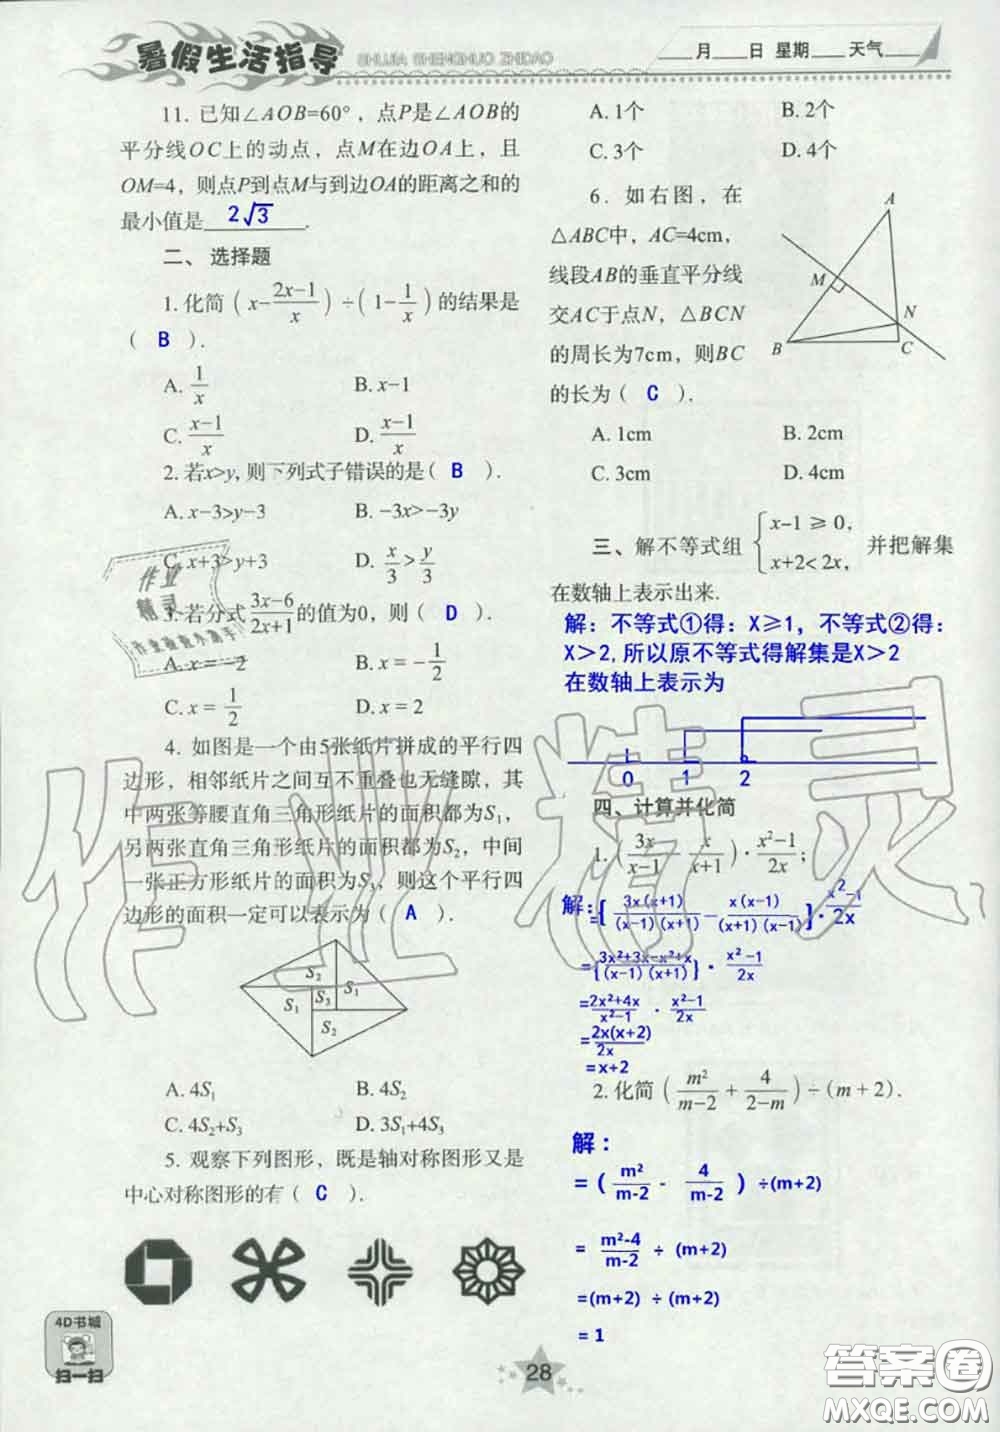 暑假生活指导 SHUJIA SHENGHUO ZHIDAO
___月___日 星期___天气___
11. 已知∠AOB=60°，点P是∠AOB的
平分线OC上的动点，点M在边OA上，且
OM=4，则点P到点M与到边OA的距离之和的
最小值是 2√3 .
二、选择题
1.化简（x-(2x-1)/x）÷（1-1/x）的结果是
（ B ）.
A. 1/x  B. x-1
C. (x-1)/x  D. x/(x-1)
2. 若x>y, 则下列式子错误的是（ B ）.
A. x-3>y-3  B. -3x>-3y
C. x+3>y+3  D. x/3>y/3
3. 若分式(3x-6)/(2x+1)的值为0，则（ D ）.
A. x = -2  B. x = -1/2
C. x = 1/2  D. x = 2
4. 如图是一个由5张纸片拼成的平行四
边形，相邻纸片之间互不重叠也无缝隙，其
中两张等腰直角三角形纸片的面积都为S₁，
另两张直角三角形纸片的面积都为S₂，中间
一张正方形纸片的面积为S₃，则这个平行四
边形的面积一定可以表示为（ A ）.
S₂
S₁ S₃ S₁
S₂
A. 4S₁  B. 4S₂
C. 4S₂+S₃  D. 3S₁+4S₃
5. 观察下列图形，既是轴对称图形又是
中心对称图形的有（ C ）.
4D书城
扫一扫
A. 1个  B. 2个
C. 3个  D. 4个
6. 如右图，在
△ABC中，AC=4cm，
线段AB的垂直平分线
交AC于点N，△BCN
的周长为7cm，则BC
的长为（ C ）.
A
M
N
B
C
A. 1cm  B. 2cm
C. 3cm  D. 4cm
三、解不等式组 { x-1≥0, x+2<2x, 并把解集
在数轴上表示出来.
解：不等式①得：X≥1，不等式②得：
X＞2,所以原不等式得解集是X＞2
在数轴上表示为
0 1 2
四、计算并化简
1.（3x/(x-1) - x/(x+1)）·(x²-1)/2x；
解：={3x(x+1)/(x-1)(x+1) - x(x-1)/(x+1)(x-1)}·(x²-1)/2x
={(3x²+3x-x²+x)/(x-1)(x+1)}·(x²-1)/2x
=(2x²+4x)/(x²-1)·(x²-1)/2x
=2x(x+2)/2x
=x+2
2. 化简（m²/(m-2) + 4/(2-m)）÷(m+2).
解：
=(m²/(m-2) - 4/(m-2))÷(m+2)
= (m²-4)/(m-2) ÷ (m+2)
=(m+2) ÷ (m+2)
= 1
28
作业精灵
作业精灵
答案圈
MXQE.COM